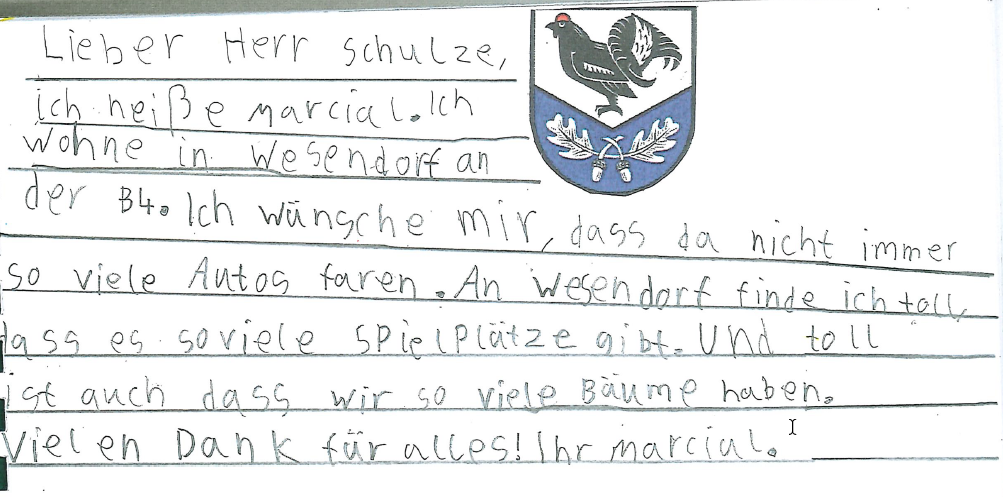 Lieber Herr Schulze,
ich heiße Marcial. Ich
wohne in Wesendorf an
der B4. Ich wünsche mir, dass da nicht immer
so viele Autos faren. An Wesendorf finde ich toll,
dass es soviele Spielplätze gibt. Und toll
ist auch dass wir so viele Bäume haben.
Vielen Dank für alles! Ihr marcial.